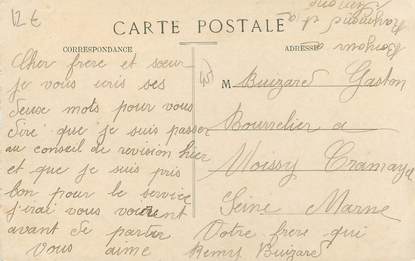 12 €
CARTE POSTALE
CORRESPONDANCE
ADRESSE
Cher frere et sœur
je vous ecris ses
deuse mots pour vous
dire que je suis passer
au conseil de revision hier
et que je suis pris
bon pour le service
j'irai vous voir
avant de partir
Votre frere qui
vous aime Remy Buizard
M Buizard Gaston
Bourrelier a
Moissy Cramaya
Seine Marne
Bonjour a